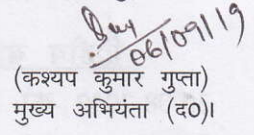 06/09/19
(कश्यप कुमार गुप्ता)
मुख्य अभियंता (द0)।